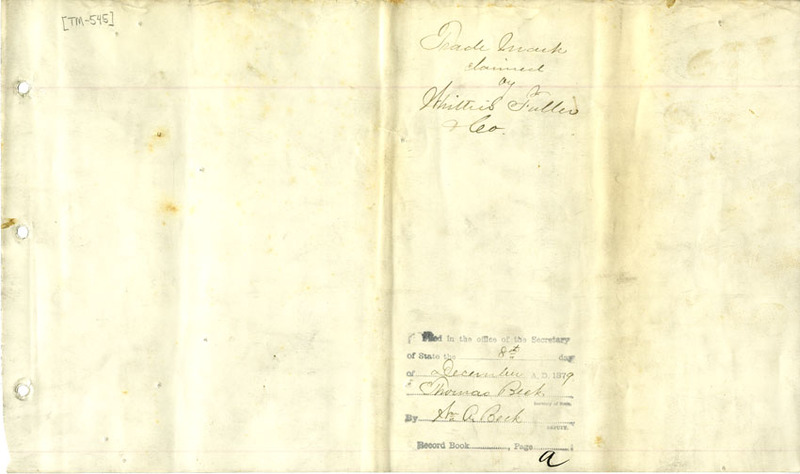 [TM-545]
Trade Mark
claimed
by
Whittier Fuller
& Co.
Filed in the office of the Secretary
of State the 8th day
of December A.D. 1879
Thomas Beck
Secretary of State.
By A. Beck
DEPUTY.
Record Book ........, Page ........
a